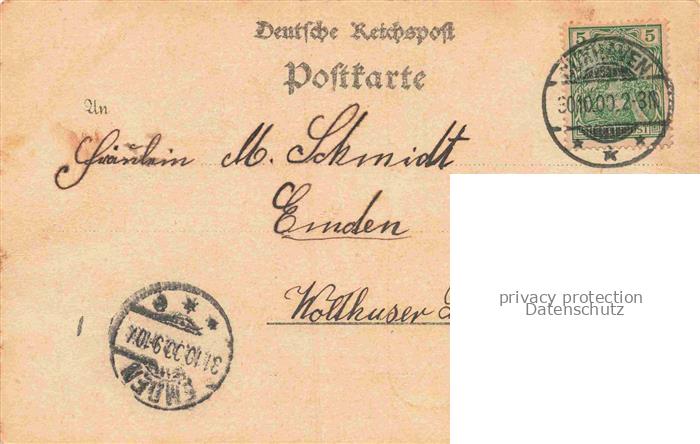 Deutsche Reichspost
Postkarte
An
Fräulein M. Schmidt
Emden
Wolthuser
5 5
30.10.00. 2-3N.
31.10.00. 9-10V.
EMDEN
privacy protection
Datenschutz